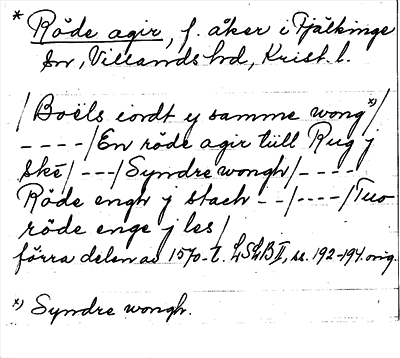 * Röde agir, f. åker i Fjälkinge
sn, Villands hd, Krist. l.
/Boëls iordt y samme wong*)/
----/En röde agir tiill Rug j
ské/---/Syndre wongh/----
Röde engh j stach --/----/Tuo
röde enge j les/
förra delen av 1570-t. LSLB II, ss. 192-194. orig.
*) Syndre wongh.